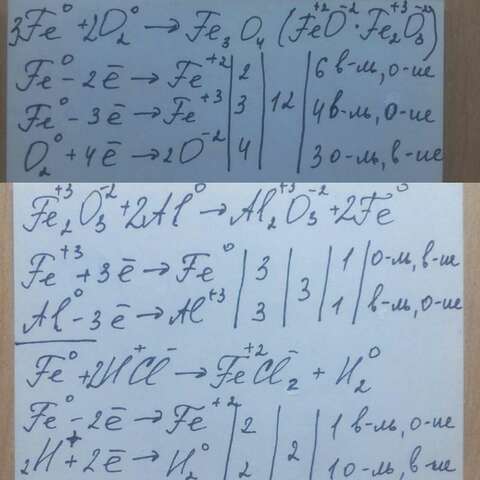 3Fe⁰ + 2O₂⁰ → Fe₃O₄ (Fe⁺²O⁻²·Fe₂⁺³O₃⁻²)
Fe⁰ - 2ē → Fe⁺² | 2 | 12 | 6 в-ль, о-ие
Fe⁰ - 3ē → Fe⁺³ | 3 | 4 в-ль, о-ие
O₂⁰ + 4ē → 2O⁻² | 4 | 3 о-ль, в-ие
Fe₂⁺³O₃⁻² + 2Al⁰ → Al₂⁺³O₃⁻² + 2Fe⁰
Fe⁺³ + 3ē → Fe⁰ | 3 | 3 | 1 | о-ль, в-ие
Al⁰ - 3ē → Al⁺³ | 3 | 1 | в-ль, о-ие
Fe⁰ + 2H⁺Cl⁻ → Fe⁺²Cl₂⁻ + H₂⁰
Fe⁰ - 2ē → Fe⁺² | 2 | 2 | 1 в-ль, о-ие
2H⁺ + 2ē → H₂⁰ | 2 | 1 о-ль, в-ие